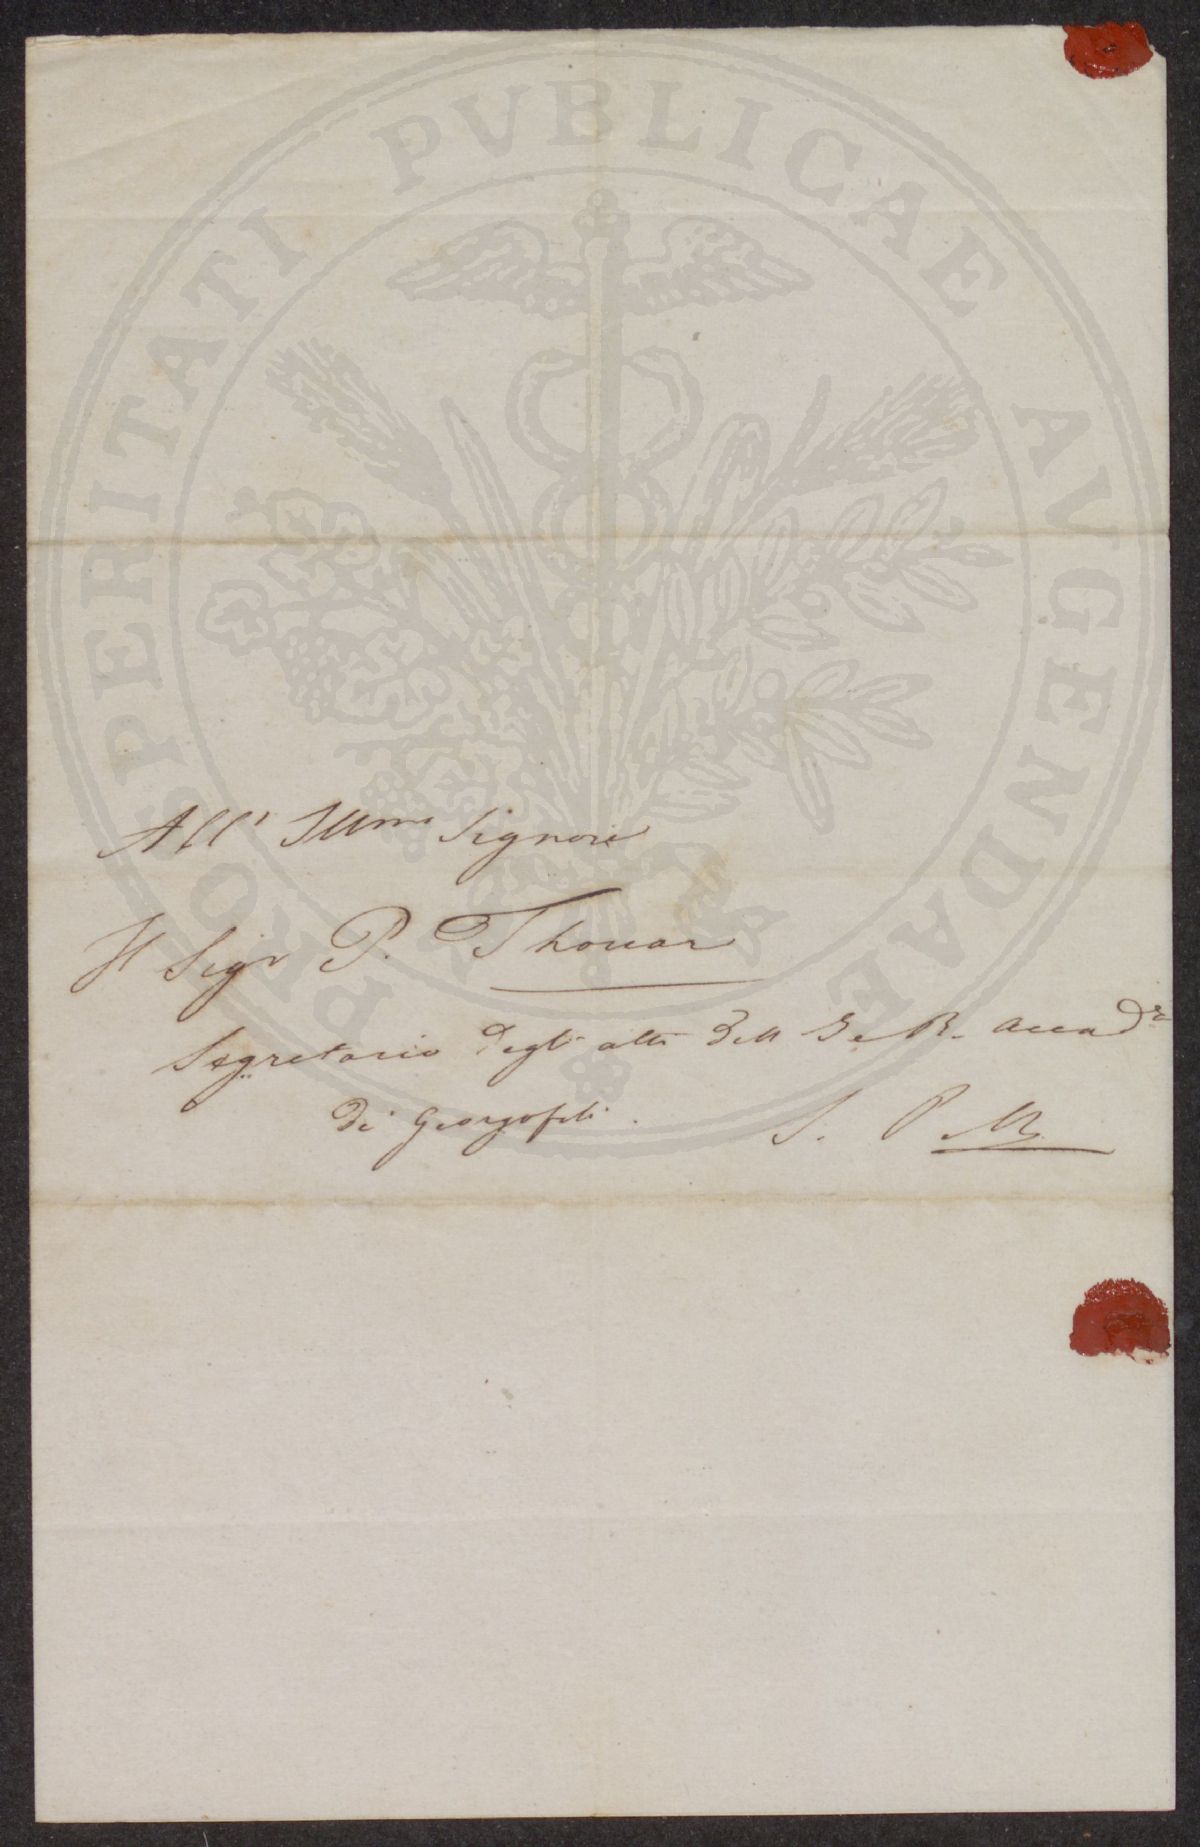 PROSPERITATI PVBLICAE AVGENDAE
All' Illmo Signore
Il Sigr P. Thouar
Segretario degli atti dell I e R. Accad
di Georgofili.
S. P. M.